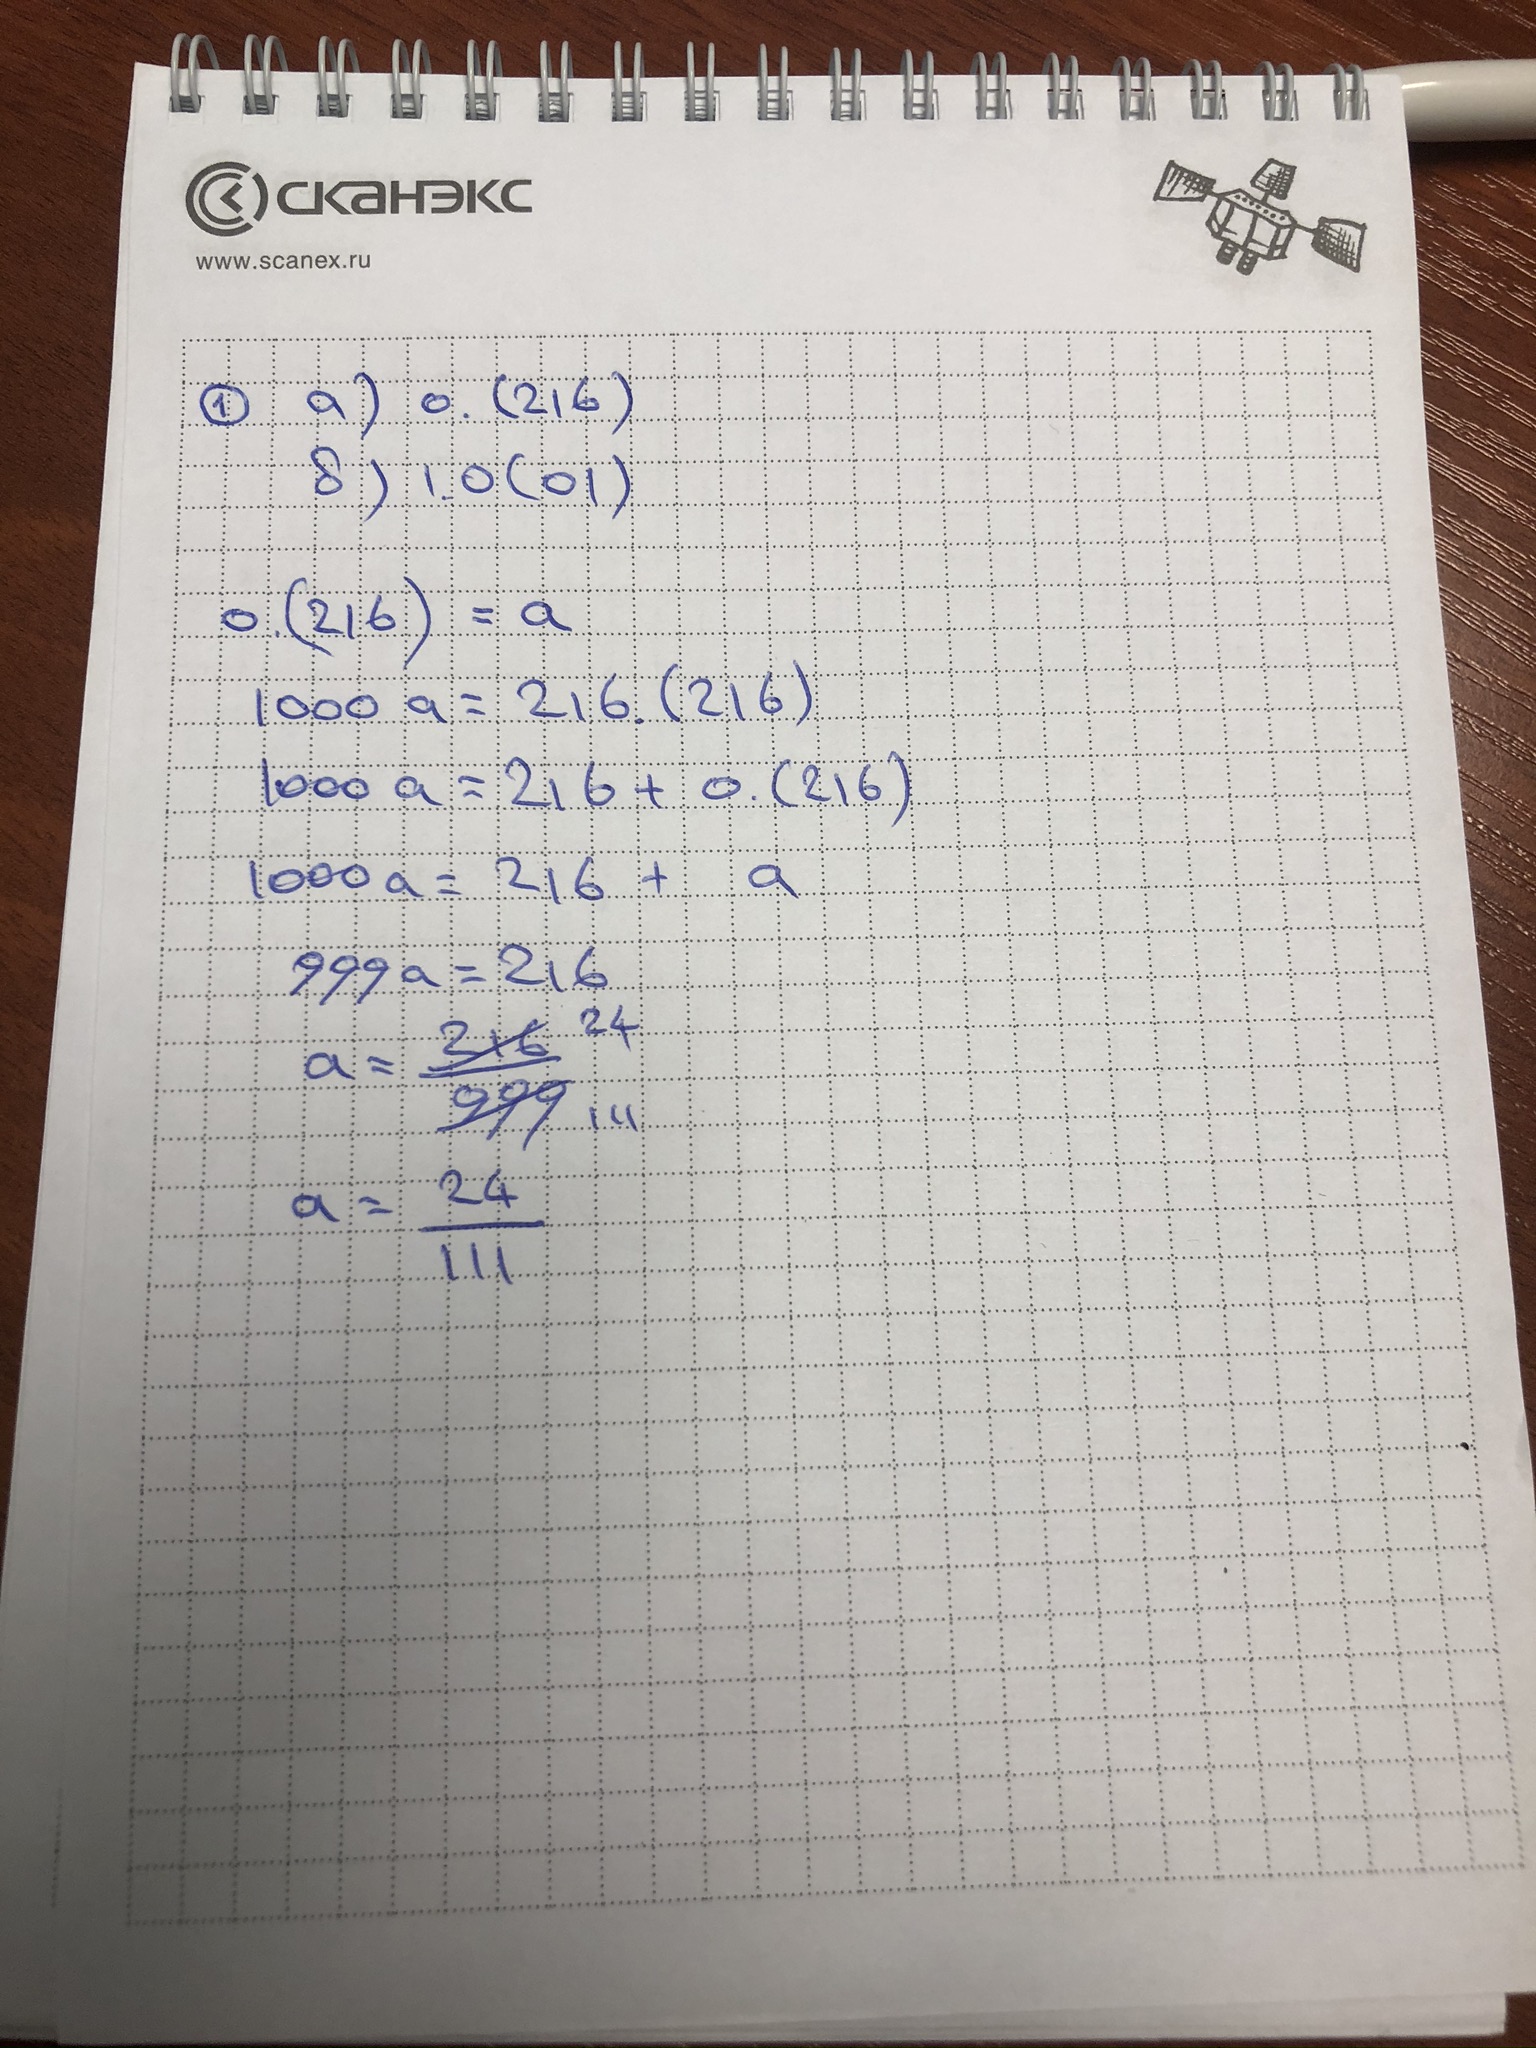 СКАНЭКС
www.scanex.ru
① а) 0.(216)
б) 1.0(01)
0.(216) = a
1000 a = 216.(216)
1000 a = 216 + 0.(216)
1000 a = 216 + a
999 a = 216
a = 216/999 24/111
a = 24/111